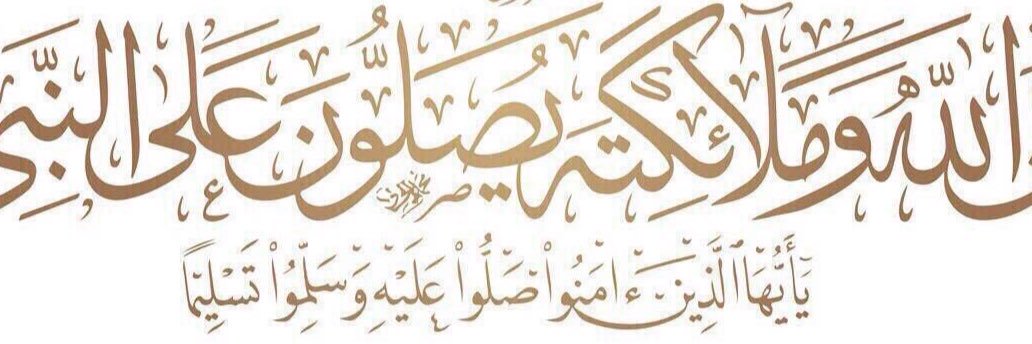 الله وملائكته يصلون على النبي
يَٰٓأَيُّهَا ٱلَّذِينَ ءَامَنُوا۟ صَلُّوا۟ عَلَيْهِ وَسَلِّمُوا۟ تَسْلِيمًا